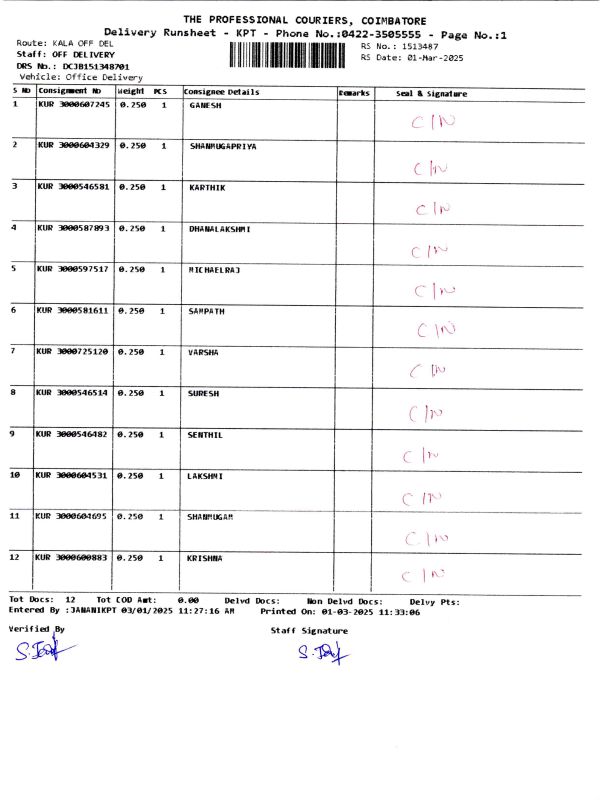 THE PROFESSIONAL COURIERS, COIMBATORE
Delivery Runsheet - KPT - Phone No.:0422-3505555 - Page No.:1
Route: KALA OFF DEL
RS No.: 1513487
Staff: OFF DELIVERY
RS Date: 01-Mar-2025
DRS No.: DCJB151348701
Vehicle: Office Delivery
S No Consignment No Weight PCS Consignee Details Remarks Seal & Signature
1 KUR 3000607245 0.250 1 GANESH C/N
2 KUR 3000604329 0.250 1 SHANMUGAPRIYA C/N
3 KUR 3000546581 0.250 1 KARTHIK C/N
4 KUR 3000587893 0.250 1 DHANALAKSHMI C/N
5 KUR 3000597517 0.250 1 MICHAELRAJ C/N
6 KUR 3000581611 0.250 1 SAMPATH C/N
7 KUR 3000725120 0.250 1 VARSHA C/N
8 KUR 3000546514 0.250 1 SURESH C/N
9 KUR 3000546482 0.250 1 SENTHIL C/N
10 KUR 3000604531 0.250 1 LAKSHMI C/N
11 KUR 3000604695 0.250 1 SHANMUGAM C/N
12 KUR 3000600883 0.250 1 KRISHNA C/N
Tot Docs: 12 Tot COD Amt: 0.00 Delvd Docs: Non Delvd Docs: Delvy Pts:
Entered By :JANANIKPT 03/01/2025 11:27:16 AM Printed On: 01-03-2025 11:33:06
Verified By Staff Signature